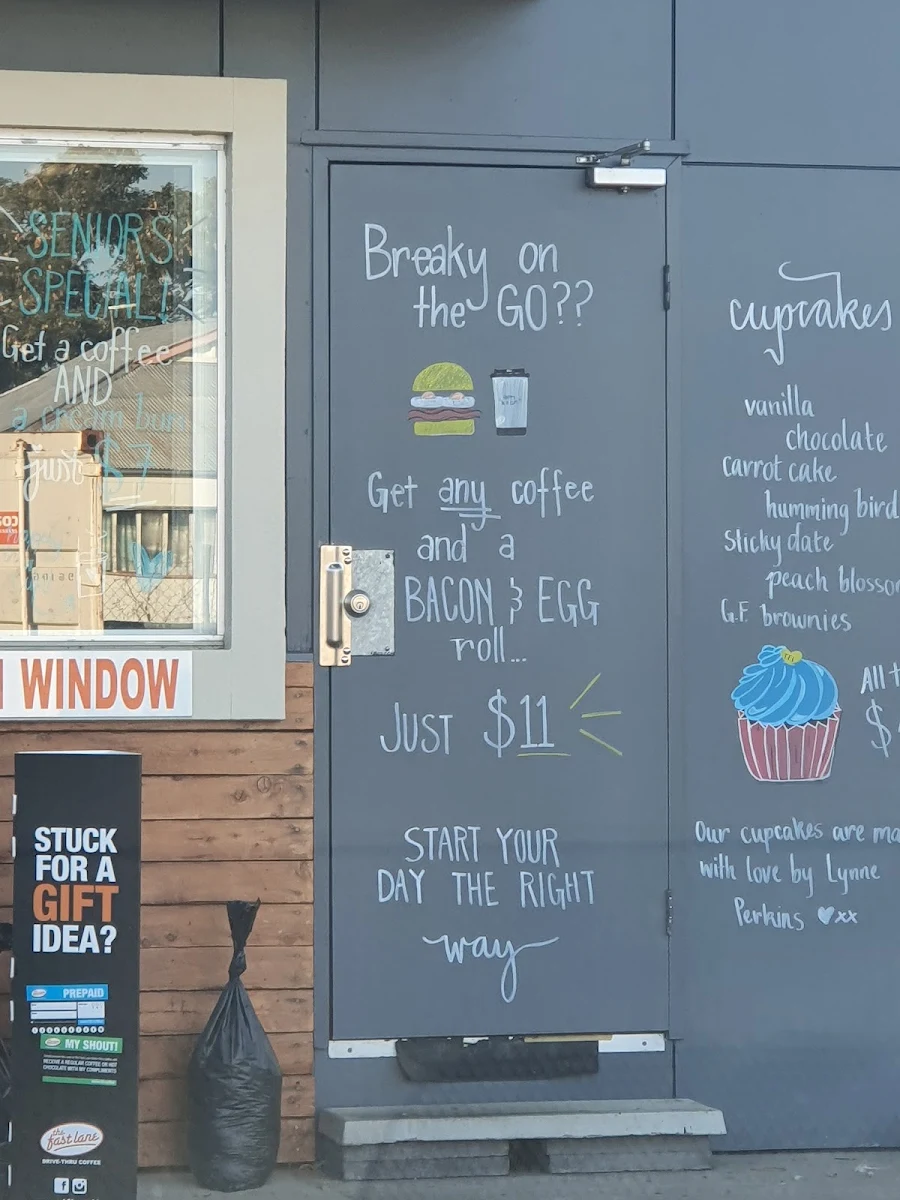 SENIORS
SPECIAL!
Get a coffee
AND
a cream bun
just $7
WINDOW
STUCK
FOR A
GIFT
IDEA?
PREPAID
MY SHOUT!
RECEIVE A REGULAR COFFEE OR HOT
CHOCOLATE WITH MY COMPLIMENTS
the
fast lane
DRIVE-THRU COFFEE
Breaky on
the GO??
Get any coffee
and a
BACON & EGG
roll...
JUST $11
START YOUR
DAY THE RIGHT
way
cupcakes
vanilla
chocolate
carrot cake
humming bird
Sticky date
peach blosso
G.F. brownies
All
$
Our cupcakes are ma
with love by Lynne
Perkins ♥xx